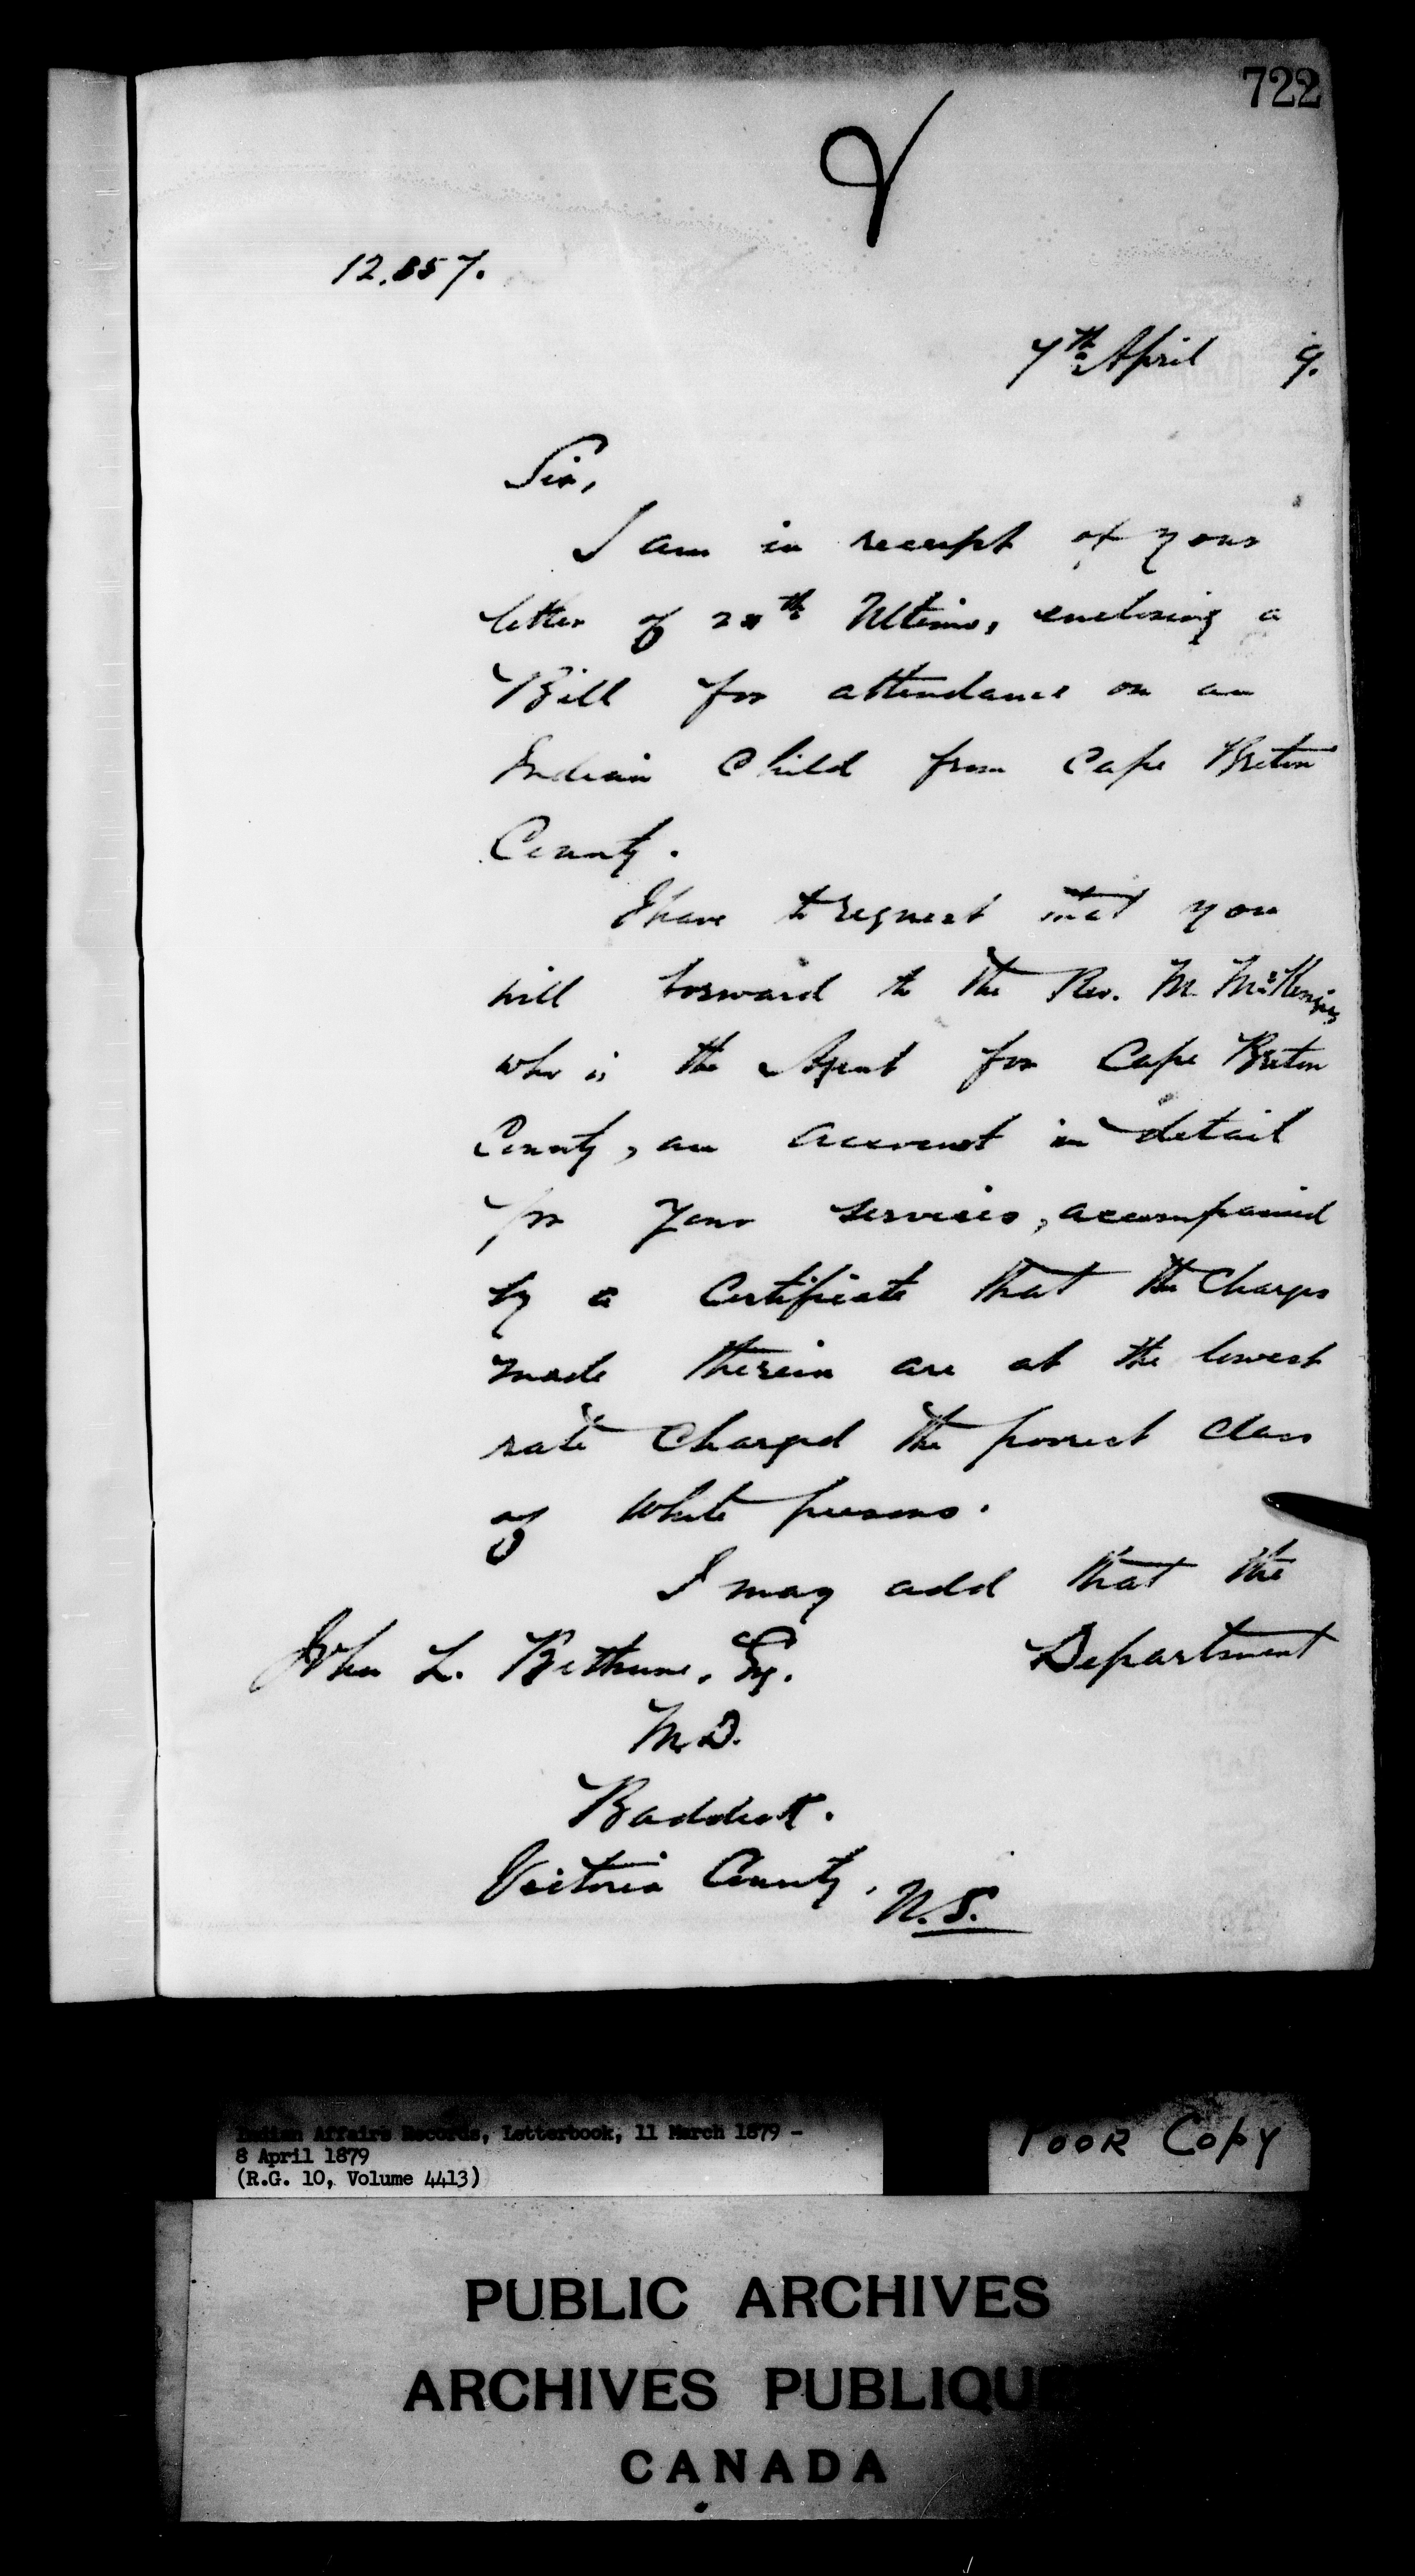 722
12,857.
7th April 9.
Sir,
I am in receipt of your
letter of th Ultimo, enclosing a
Bill for attendance on an
Indian Child from Cape Breton
County.
I have to request that you
will forward to the Rev. M. McKenzie,
who is the Agent for Cape Breton
County, an account in detail
for your services, accompanied
by a Certificate that the Charges
made therein are at the lowest
rate Charged the poorest class
of White persons.
I may add that the
Department
John L. Bethune, Esq.
M.D.
Baddeck.
Victoria County, N.S.
Indian Affairs Records, Letterbook, 11 March 1879 -
8 April 1879
(R.G. 10, Volume 4413)
POOR COPY
PUBLIC ARCHIVES
ARCHIVES PUBLIQUE
CANADA